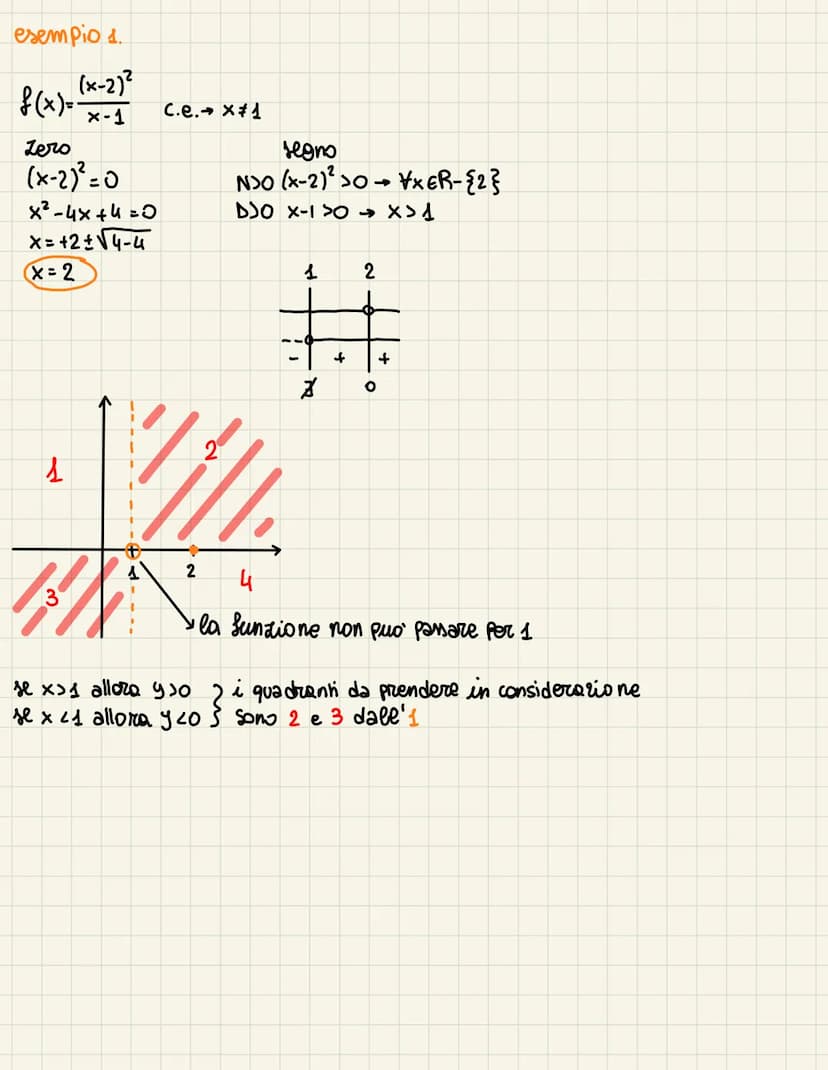 esempio 1.
f(x)= (x-2)²/x-1 c.e.→ x≠1
zero segno
(x-2)²=0 N>0 (x-2)²>0 → ∀x∈R-{2}
x²-4x+4=0 D>0 x-1>0 → x>1
x=+2±√4-4
x=2
1 2
- + +
∄ 0
1 2
1 2
3 4
la funzione non può passare per 1
se x>1 allora y>0 } i quadranti da prendere in considerazione
se x<1 allora y<0 } sono 2 e 3 dall'1